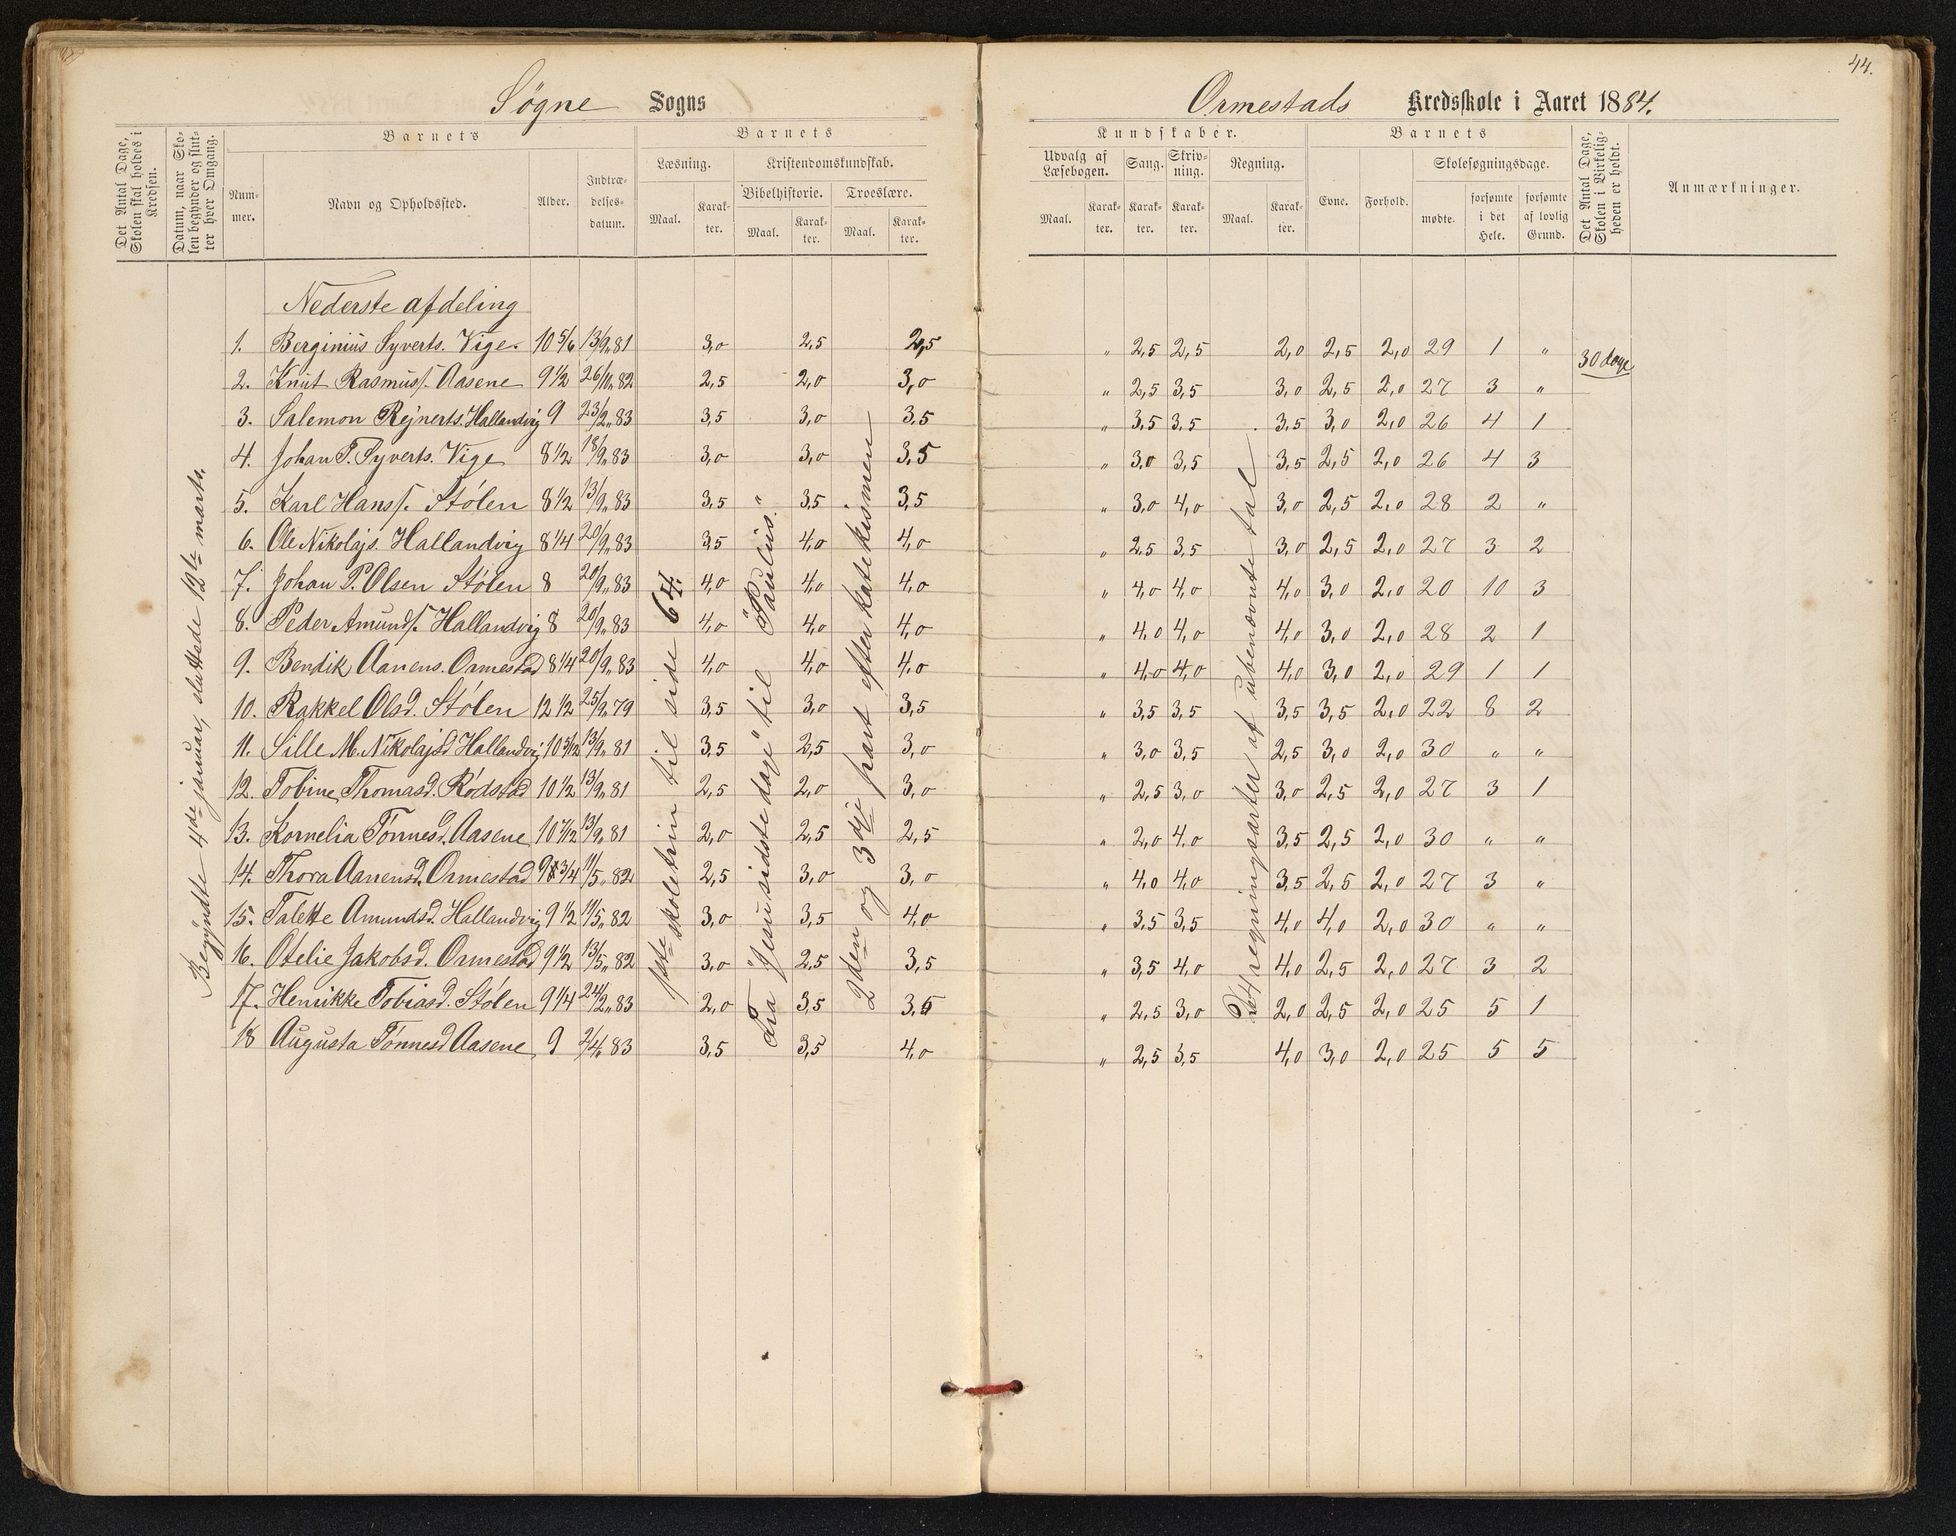 44.
Søgne Sogns
Ormestads Kredsskole i Aaret 1884.
Det Antal Dage, Skolen skal holdes i Kredsen.
Datum, naar Skolen begynder og slutter hver Omgang.
Barnets
Nummer.
Navn og Opholdssted.
Alder.
Indtrædelsesdatum.
Barnets
Læsning.
Maal.
Karakter.
Kristendomskundskab.
Bibelhistorie.
Maal.
Karakter.
Troeslære.
Maal.
Karakter.
Kundskaber.
Udvalg af Læsebogen.
Maal.
Karakter.
Sang.
Karakter.
Skrivning.
Karakter.
Regning.
Maal.
Karakter.
Barnets
Evne.
Forhold.
Skolesøgningsdage.
mødte.
forsømte i det Hele.
forsømte af lovlig Grund.
Det Antal Dage, Skolen i Virkeligheden er holdt.
Anmærkninger.
Nederste afdeling
1. Berginius Syverts. Vige. 10 5/6 13/9 81 3,0 2,5 2,5 " 2,5 2,5 2,0 2,5 2,0 29 1 " 30 dage
2. Knut Rasmuss. Aasene 9 1/2 26/11 82 2,5 2,0 3,0 " 2,5 3,5 3,0 2,5 2,0 27 3 "
3. Salemon Rejnerts. Hallandvig 9 23/2 83 3,5 3,0 3,5 " 3,5 3,5 3,5 3,0 2,0 26 4 1
4. Johan T. Syverts. Vige 8 1/2 18/9 83 3,0 3,0 3,5 " 3,0 3,5 3,5 2,5 2,0 26 4 3
5. Karl Hanss. Stølen 8 1/2 13/9 83 3,5 " 3,5 3,5 " 3,0 4,0 3,0 2,5 2,0 28 2 "
6. Ole Nikolajs. Hallandvig 8 1/4 20/9 83 3,5 4,0 4,0 " 2,5 3,5 3,0 2,5 2,0 27 3 2
7. Johan P. Olsen Stølen 8 20/9 83 4,0 4,0 4,0 " 4,0 4,0 4,0 3,0 2,0 20 10 3
8. Peder Amunds. Hallandvig 8 20/9 83 4,0 4,0 4,0 " 4,0 4,0 4,0 3,0 2,0 28 2 1
9. Bendik Aanens. Ormestad 8 1/4 20/9 83 4,0 4,0 4,0 " 4,0 4,0 4,0 3,0 2,0 29 1 1
10. Rakkel Olsd. Stølen 12 1/2 25/9 79 3,5 3,0 3,5 " 3,5 3,5 3,5 3,5 2,0 22 8 2
11. Sille M. Nikolajsd Hallandvig 10 13/9 81 3,5 2,5 3,0 " 3,0 3,5 2,5 3,0 2,0 30 " "
12. Tobine Thomasd. Rødstad 10 1/2 13/9 81 2,5 2,0 3,0 " 2,5 3,0 3,0 2,5 2,0 27 3 1
13. Kornelia Tønnesd. Aasene 10 13/9 81 2,0 2,5 2,5 " 2,0 4,0 3,5 2,5 2,0 30 " "
14. Thora Aanensd. Ormestad 9 3/4 11/5 82 2,5 3,0 3,0 " 4,0 4,0 3,5 2,5 2,0 27 3 "
15. Talette Amundsd. Hallandvig 9 1/2 11/5 82 3,0 3,5 4,0 " 3,5 3,5 4,0 4,0 2,0 30 " "
16. Otelie Jakobsd. Ormestad 9 1/2 13/5 82 3,0 2,5 3,5 " 3,5 4,0 4,0 2,5 2,0 27 3 2
17. Henrikke Tobiasd. Stølen 9 1/4 24/2 83 2,0 3,5 3,5 " 2,5 3,0 2,0 2,5 2,0 25 5 1
18 Augusta Tønnesd Aasene 9 2/4 83 3,5 3,5 4,0 " 2,5 3,5 4,0 3,0 2,0 25 5 5
Begyndte 4de januar, sluttede 12te marts.
1ste skoletrin til side 64.
Fra "Jesu sidste dage" til "Paulus."
2den og 3dje part efter katekismen
De 4 regningsarter af ubenævnte tal